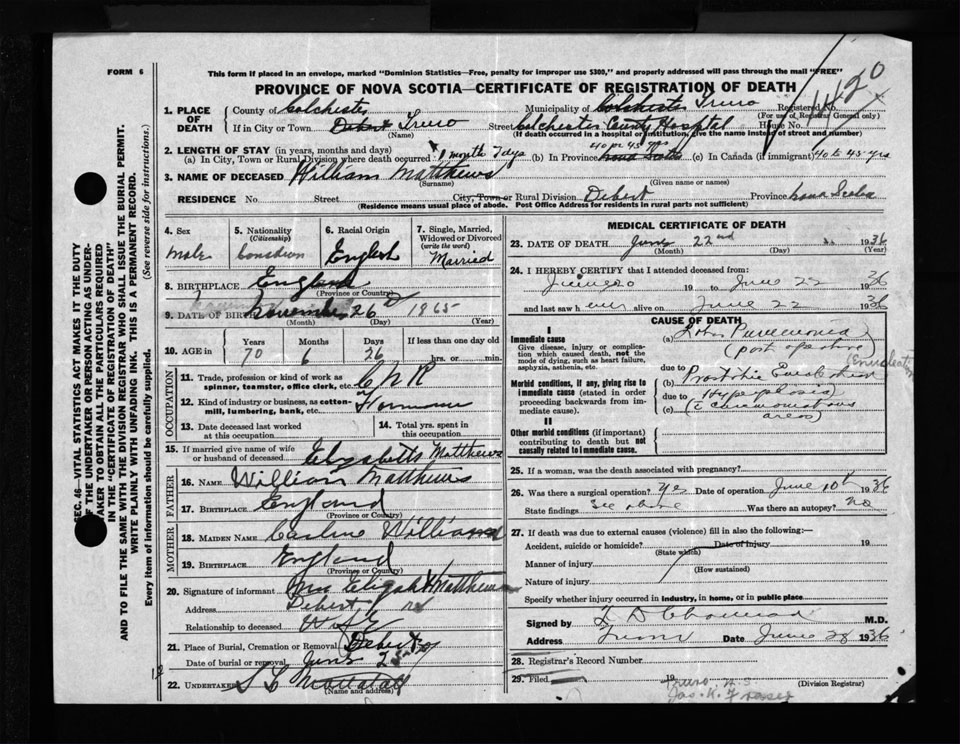 FORM 6
This form if placed in an envelope, marked "Dominion Statistics—Free, penalty for improper use $300," and properly addressed will pass through the mail "FREE"
PROVINCE OF NOVA SCOTIA—CERTIFICATE OF REGISTRATION OF DEATH
1. PLACE OF DEATH County of Colchester Municipality of Colchester Truro Registered No.
(For use of Registrar General only)
If in City or Town Debert Truro Street Colchester County Hospital House No.
(Name) (If death occurred in hospital or institution, give the name instead of street and number)
2. LENGTH OF STAY (in years, months and days) 40 or 45 yrs
(a) In City, Town or Rural Division where death occurred 1 month 7 days (b) In Province Nova Scotia (c) In Canada (if immigrant) 40 to 45 yrs
3. NAME OF DECEASED William Matthews
(Surname) (Given name or names)
RESIDENCE No. Street City, Town or Rural Division Debert Province Nova Scotia
(Residence means usual place of abode. Post Office Address for residents in rural parts not sufficient)
4. Sex
Male
5. Nationality
(Citizenship)
Canadian
6. Racial Origin
English
7. Single, Married, Widowed or Divorced
(write the word)
Married
8. BIRTHPLACE England
(Province or Country)
9. DATE OF BIRTH November 26 1865
(Month) (Day) (Year)
10. AGE in Years Months Days If less than one day old
70 6 26 hrs. or min.
OCCUPATION
11. Trade, profession or kind of work as spinner, teamster, office clerk, etc. C N R
12. Kind of industry or business, as cotton-mill, lumbering, bank, etc.
13. Date deceased last worked at this occupation
14. Total yrs. spent in this occupation
15. If married give name of wife or husband of deceased Elizabeth Matthews
FATHER
16. NAME William Matthews
17. BIRTHPLACE England
(Province or Country)
MOTHER
18. MAIDEN NAME Williams
19. BIRTHPLACE England
(Province or Country)
20. Signature of informant Mrs Elizabeth Matthews
Address Debert
Relationship to deceased Wife
21. Place of Burial, Cremation or Removal Debert
Date of burial or removal June 25
22. UNDERTAKER
(Name and address)
MEDICAL CERTIFICATE OF DEATH
23. DATE OF DEATH June 22nd 1936
(Month) (Day) (Year)
24. I HEREBY CERTIFY that I attended deceased from:
19 to June 22 1936
and last saw h alive on June 22 1936
CAUSE OF DEATH
I
Immediate cause
Give disease, injury or complication which caused death, not the mode of dying, such as heart failure, asphyxia, asthenia, etc.
(a) Lobar Pneumonia
(post operative)
due to
Morbid conditions, if any, giving rise to immediate cause (stated in order proceeding backwards from immediate cause).
(b)
due to
(c)
areas)
II
Other morbid conditions (if important) contributing to death but not causally related to immediate cause.
25. If a woman, was the death associated with pregnancy?
26. Was there a surgical operation? Yes Date of operation June 10th 1936
State findings See above Was there an autopsy? No
27. If death was due to external causes (violence) fill in also the following:—
Accident, suicide or homicide? Date of injury 19
(State which)
Manner of injury
(How sustained)
Nature of injury
Specify whether injury occurred in industry, in home, or in public place
Signed by M.D.
Address Truro Date June 1936
28. Registrar's Record Number
29. Filed 19
Truro N.S.
Jas. K. Fraser
(Division Registrar)
SEC. 46—VITAL STATISTICS ACT MAKES IT THE DUTY
OF THE UNDERTAKER OR PERSON ACTING AS UNDER-
TAKER TO OBTAIN ALL THE PARTICULARS REQUIRED
IN THE "CERTIFICATE OF REGISTRATION OF DEATH"
AND TO FILE THE SAME WITH THE DIVISION REGISTRAR WHO SHALL ISSUE THE BURIAL PERMIT.
WRITE PLAINLY WITH UNFADING INK. THIS IS A PERMANENT RECORD.
Every item of information should be carefully supplied. (See reverse side for instructions.)